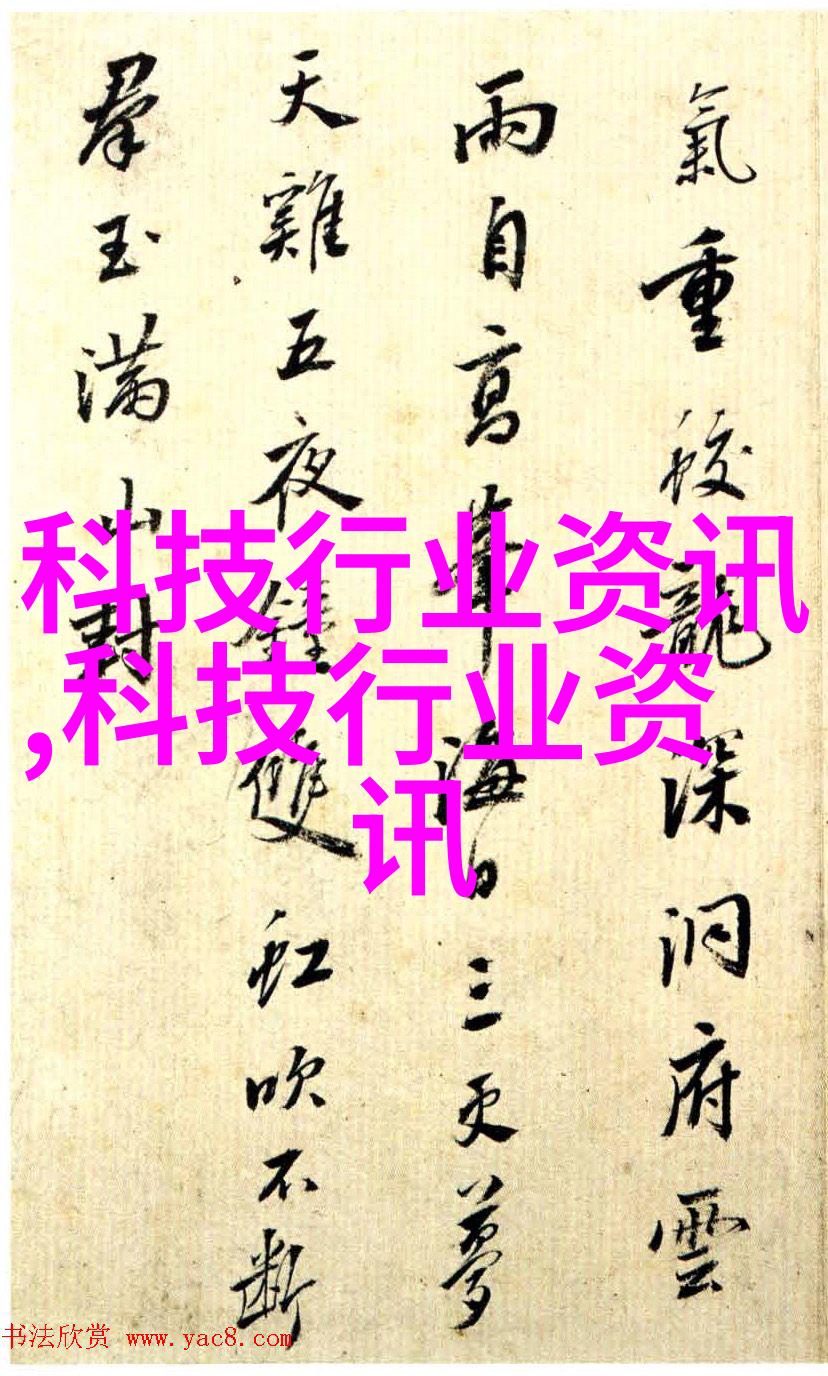 氣重蛟龍深洞府雲
雨自高峯海日三更夢
天雞五夜鐘雙虹吹不斷
羣玉滿山封
科技行业资讯
,科技行业资
讯
书法欣赏 www.yac8.com